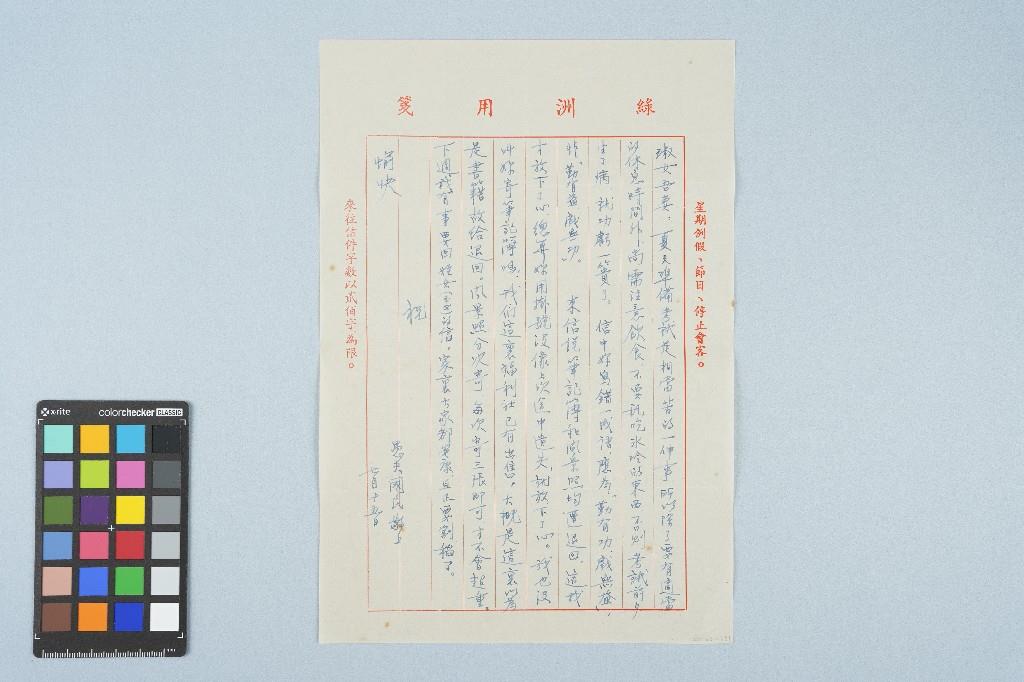 綠洲用箋
星期例假、節日、停止會客。
淑女吾妻：夏天準備考試是相當苦的一件事，所以除了要有適當
的休息時間外，尚需注意飲食，不要訊吃冰冷的東西，否則考試前夕
生了病就功虧一簣了。 信中妳寫錯一成語應為“勤有功，戲無益”，
非“勤有益戲無功”。 來信謂筆記簿和風景照均遭退回，這我
才放下了心，總算妳用掛號沒像上次途中遺失，就放下了心。我也沒
叫妳寄筆記簿嗎，我們這裏福利社已有出售。大概是這裏以為
是書籍故給退回。風景照分次寄，每次寄三張即可，才不會超重。
下週我有事要回姪女玉 的信。家裏大家都 康且正要割稻了。
祝
愉快
思夫國民敬上
七月十五日
來往信件字數以貳佰字為限。
xrite
colorchecker CLASSIC